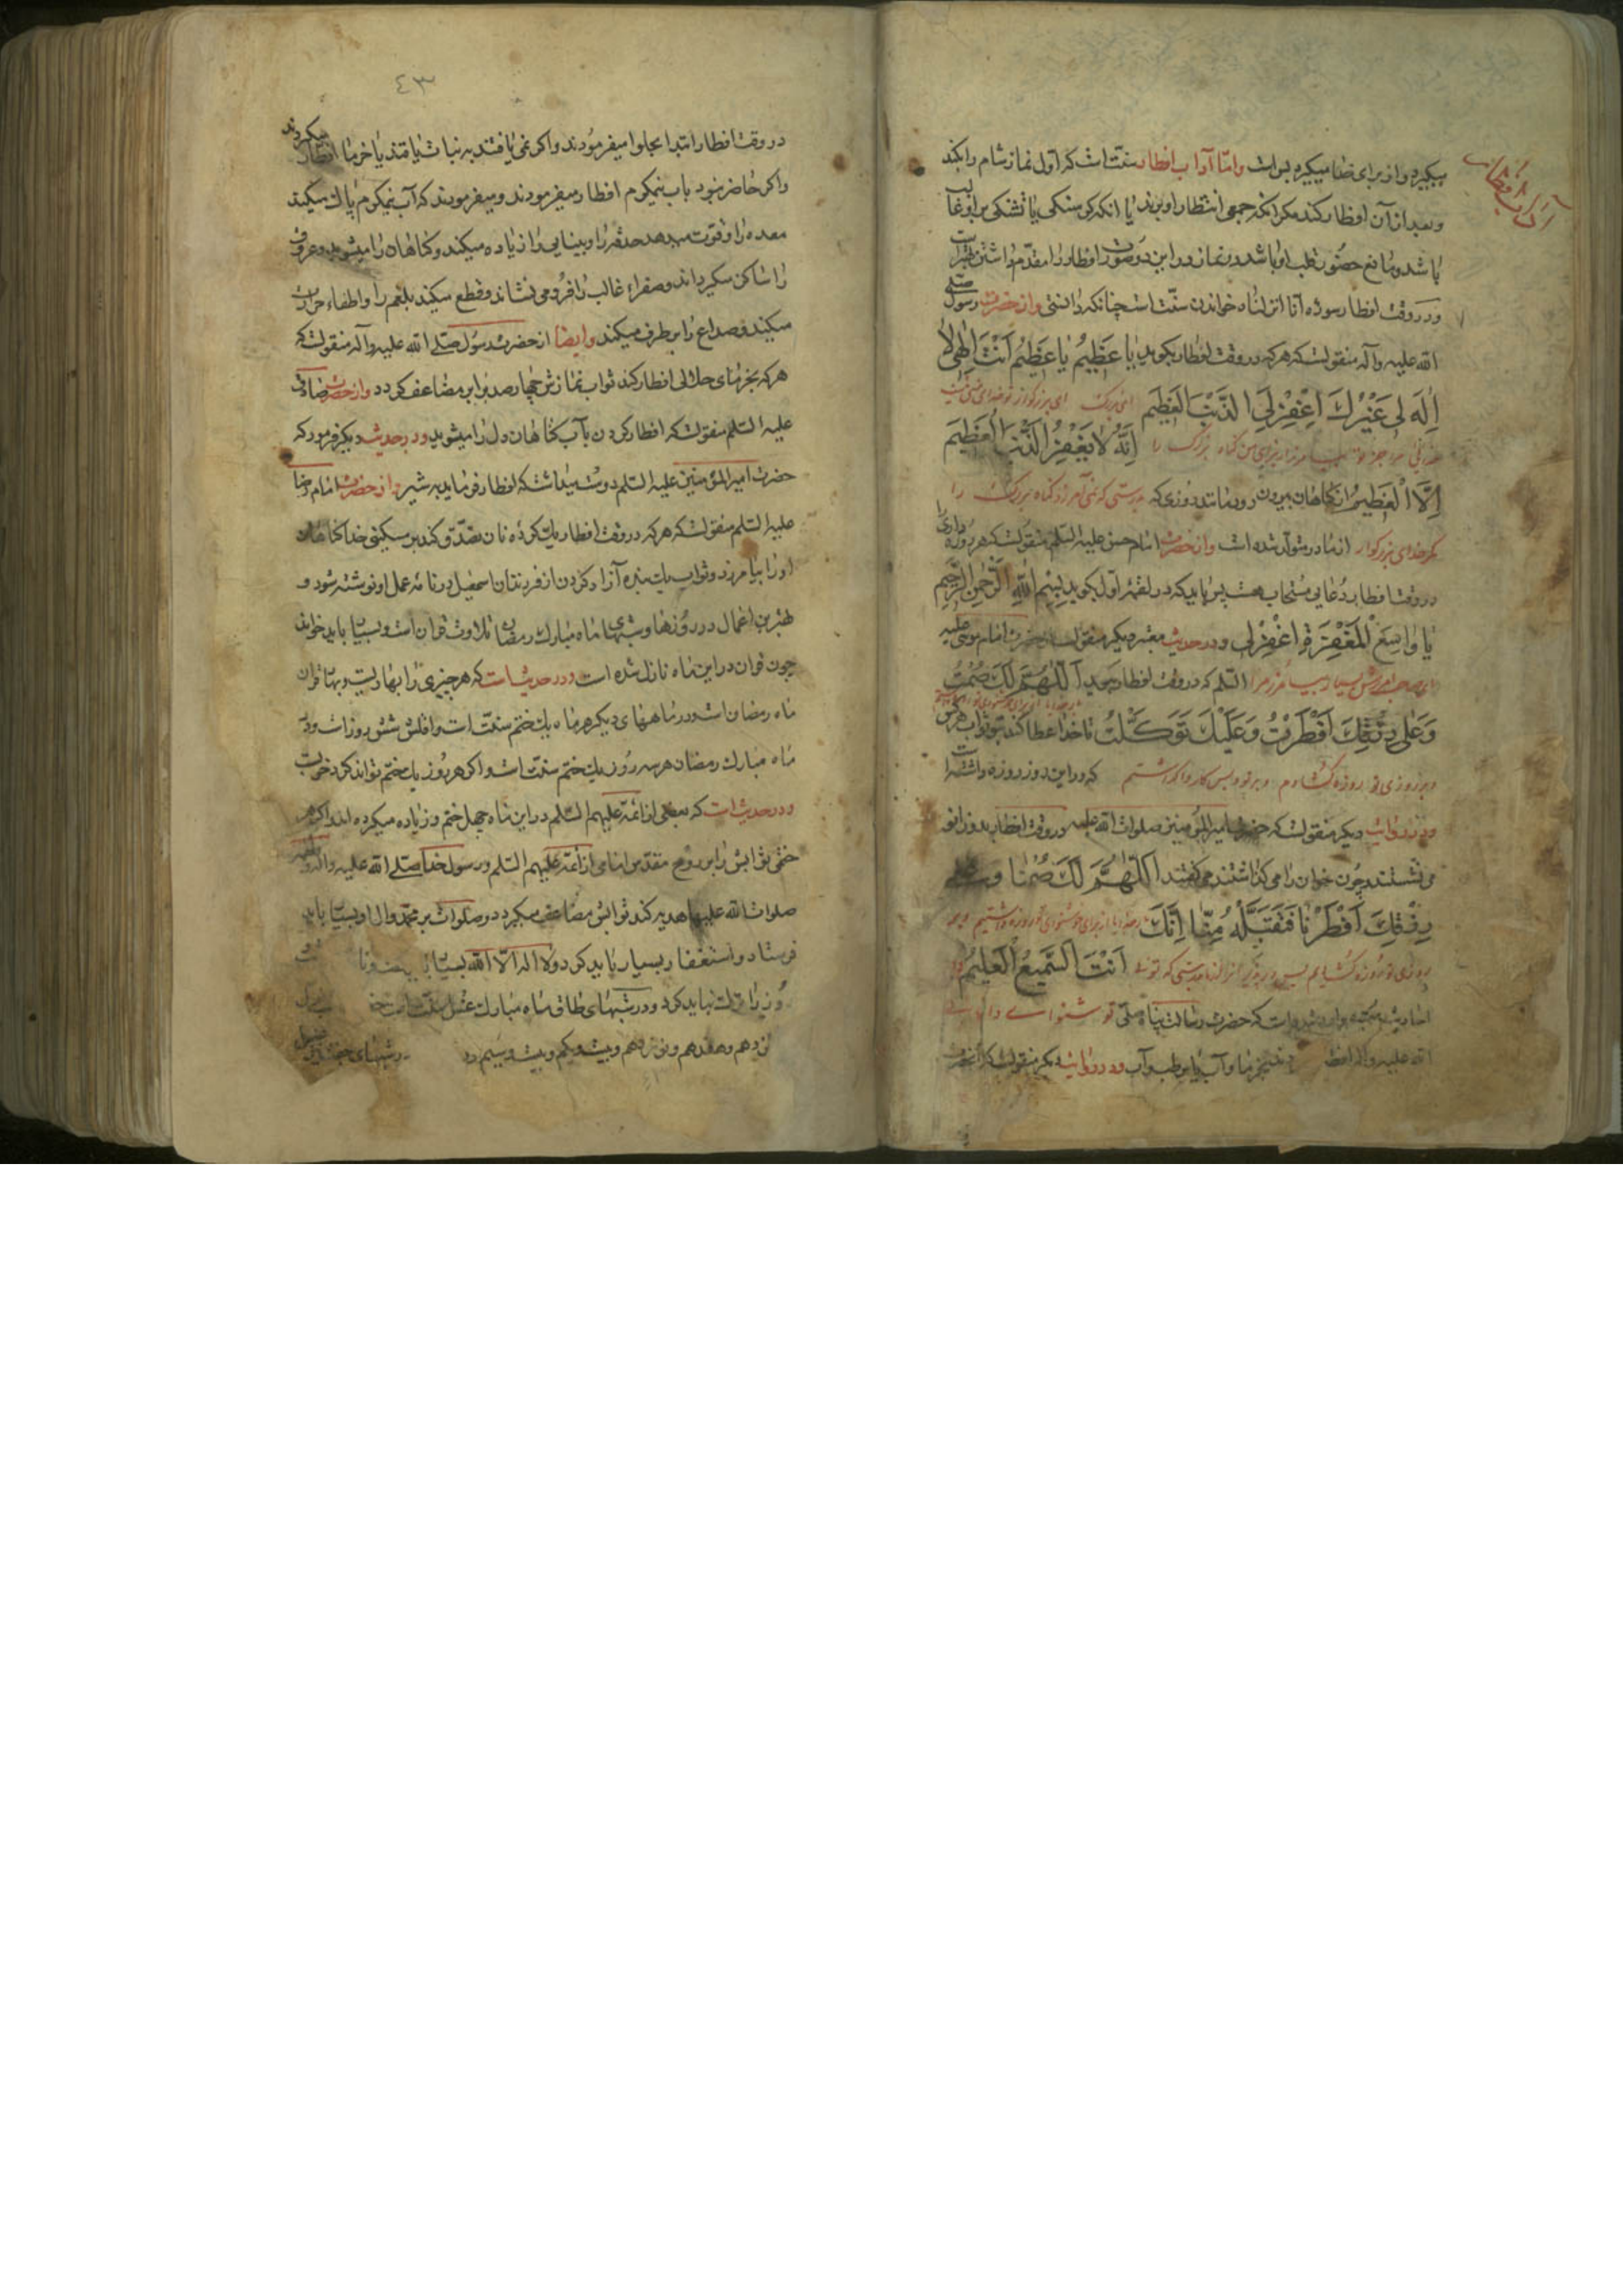 آداب افطار
میگیرد و از برای خدا میگیرد بس است و امّا آداب افطار سنّت است که اوّل نماز شام را بکند
و بعد از آن افطار کند مکر انکه جمعی انتظار او برند یا انکه کرسنکی یا تشنکی بر او غالب
باشد و مانع حضور قلب او باشد در نماز و در این دو صورت افطار را مقدّم داشتن بهتر است
و در وقت افطار سوره انّا انزلناه خواندن سنّت است چنانکه دانستی و از حضرت رسول صلّی
الله علیه و آله منقولست که هر که در وقت افطار بکوید یا عَظِیمُ یا عَظِیمُ اَنْتَ اِلٰهی لا
اِلٰهَ لی غَیْرُكَ اِغْفِرْ لِیَ الذَّنْبَ الْعَظِیمَ ای بزرک ای بزرکوار تو خدای منی نیست
خدائی مرا جز تو بیامرز از برای من کناه بزرک را اِنَّهُ لا یَغْفِرُ الذَّنْبَ الْعَظِیمَ
اِلَّا الْعَظِیمُ از کناهان بیرون رود مانند روزی که بدرستی که نمی آمرزد کناه بزرک را
مکر خدای بزرکوار از مادر متولّد شده است و از حضرت امام حسن علیه السّلم منقولست که هر روزه داری را
در وقت افطار دعایی مستجاب هست پس باید که در لقمه اوّل بکوید بِسْمِ اللهِ الرَّحْمٰنِ الرَّحِیمِ
یا واسِعَ الْمَغْفِرَةِ اِغْفِرْ لی و در حدیث معتبر دیکر منقولست از حضرت امام موسی علیه
ای صاحب آمرزش بسیار بیامرز مرا السّلم که در وقت افطار بکوید اَللّٰهُمَّ لَكَ صُمْتُ
وَ عَلٰی رِزْقِكَ اَفْطَرْتُ وَ عَلَیْكَ تَوَكَّلْتُ تا خدا عطا کند بتو ثواب هر کس
و بر روزی تو روزه کشادم و بر تو و بس کار واکذاشتم که در این روز روزه داشته است
و در روایت دیکر منقولست که حضرت امیر المؤمنین صلوات الله علیه در وقت افطار بدو زانو
می نشستند چون خوان را می کذاشتند می کفتند اَللّٰهُمَّ لَكَ صُمْنا وَ عَلٰی
رِزْقِكَ اَفْطَرْنا فَتَقَبَّلْهُ مِنّا اِنَّكَ خداوندا از برای خوشنودی تو روزه داشتیم و بر
روزی تو روزه کشادیم پس در پذیر از ما بدرستی که توئی اَنْتَ السَّمیعُ الْعَلیمُ و در
احادیث معتبره وارد شده است که حضرت رسالت پناه صلّی تو شنوای دانا
الله علیه و آله افطار بخرما و آب یا رطب و آب و در روایت دیکر منقولست که آنحضرت
٤٣
در وقت افطار ابتدا بحلوا میفرمودند و اکر نمی یافتند به نبات یا قند یا خرما افطار میکردند
و اکر حاضر نبود باب نیمکرم افطار میفرمودند و میفرمودند که آب نیمکرم پاك میکند
معده را و قوّت میدهد حدقه را و بینایی را زیاده میکند و کناهان را میشوید و عروق
را ساکن میکرداند و صفراء غالب را فرو می نشاند و قطع میکند بلغم را و اطفاء حرارت
میکند و صداع را بر طرف میکند و ایضا از حضرت رسول صلّی الله علیه و آله منقولست که
هر که بخرمای حلال افطار کند ثواب نمازش چهار صد برابر مضاعف کردد و از حضرت صادق
علیه السّلم منقولست که افطار کردن بآب کناهان دل را میشوید و در حدیث دیکر فرمود که
حضرت امیر المؤمنین علیه السّلم دوست میداشت که افطار فرماید به شیر و از حضرت امام رضا
علیه السّلم منقولست که هر که در وقت افطار یك کرده نان تصدّق کند بر مسکینی خدا کناهان
او را بیامرزد و ثواب یك بنده آزاد کردن از فرزندان اسمعیل در نامه عمل او نوشته شود و
بهترین اعمال در روزها و شبهای ماه مبارك رمضان تلاوت قران است و بسیار باید خواند
چون قران در این ماه نازل شده است و در حدیث است که هر چیزی را بهاریست و بهار قران
ماه رمضان است و در ماههای دیکر هر ماه یك ختم سنّت است و اقلش شش روز است و در
ماه مبارك رمضان هر سه روز یك ختم سنّت است و اکر هر روز یك ختم تواند کرد خوبست
و در حدیث است که بعضی از ائمّه علیهم السّلم در این ماه چهل ختم و زیاده میکرده اند و اکر هر
ختمی ثوابش را بروح مقدّس امامی از ائمّه علیهم السّلم و رسول خدا صلّی الله علیه و آله و فاطمه
صلوات الله علیها هدیه کند ثوابش مضاعف میکردد و صلوات بر محمّد و ال او بسیار باید
فرستاد و استغفار بسیار باید کرد و لا اله الّا الله بسیار باید
در شبهای طاق ماه مبارك غسل سنّت است
نزدهم و هفدهم و نوزدهم و بیست و یکم و بیست و سیم